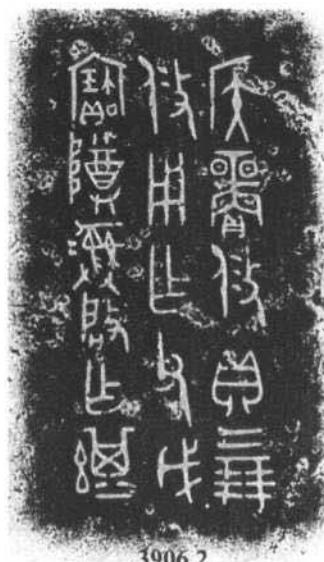 侯賞攸貝三朋
攸用乍父戊
寶尊彝啟乍
3906.2